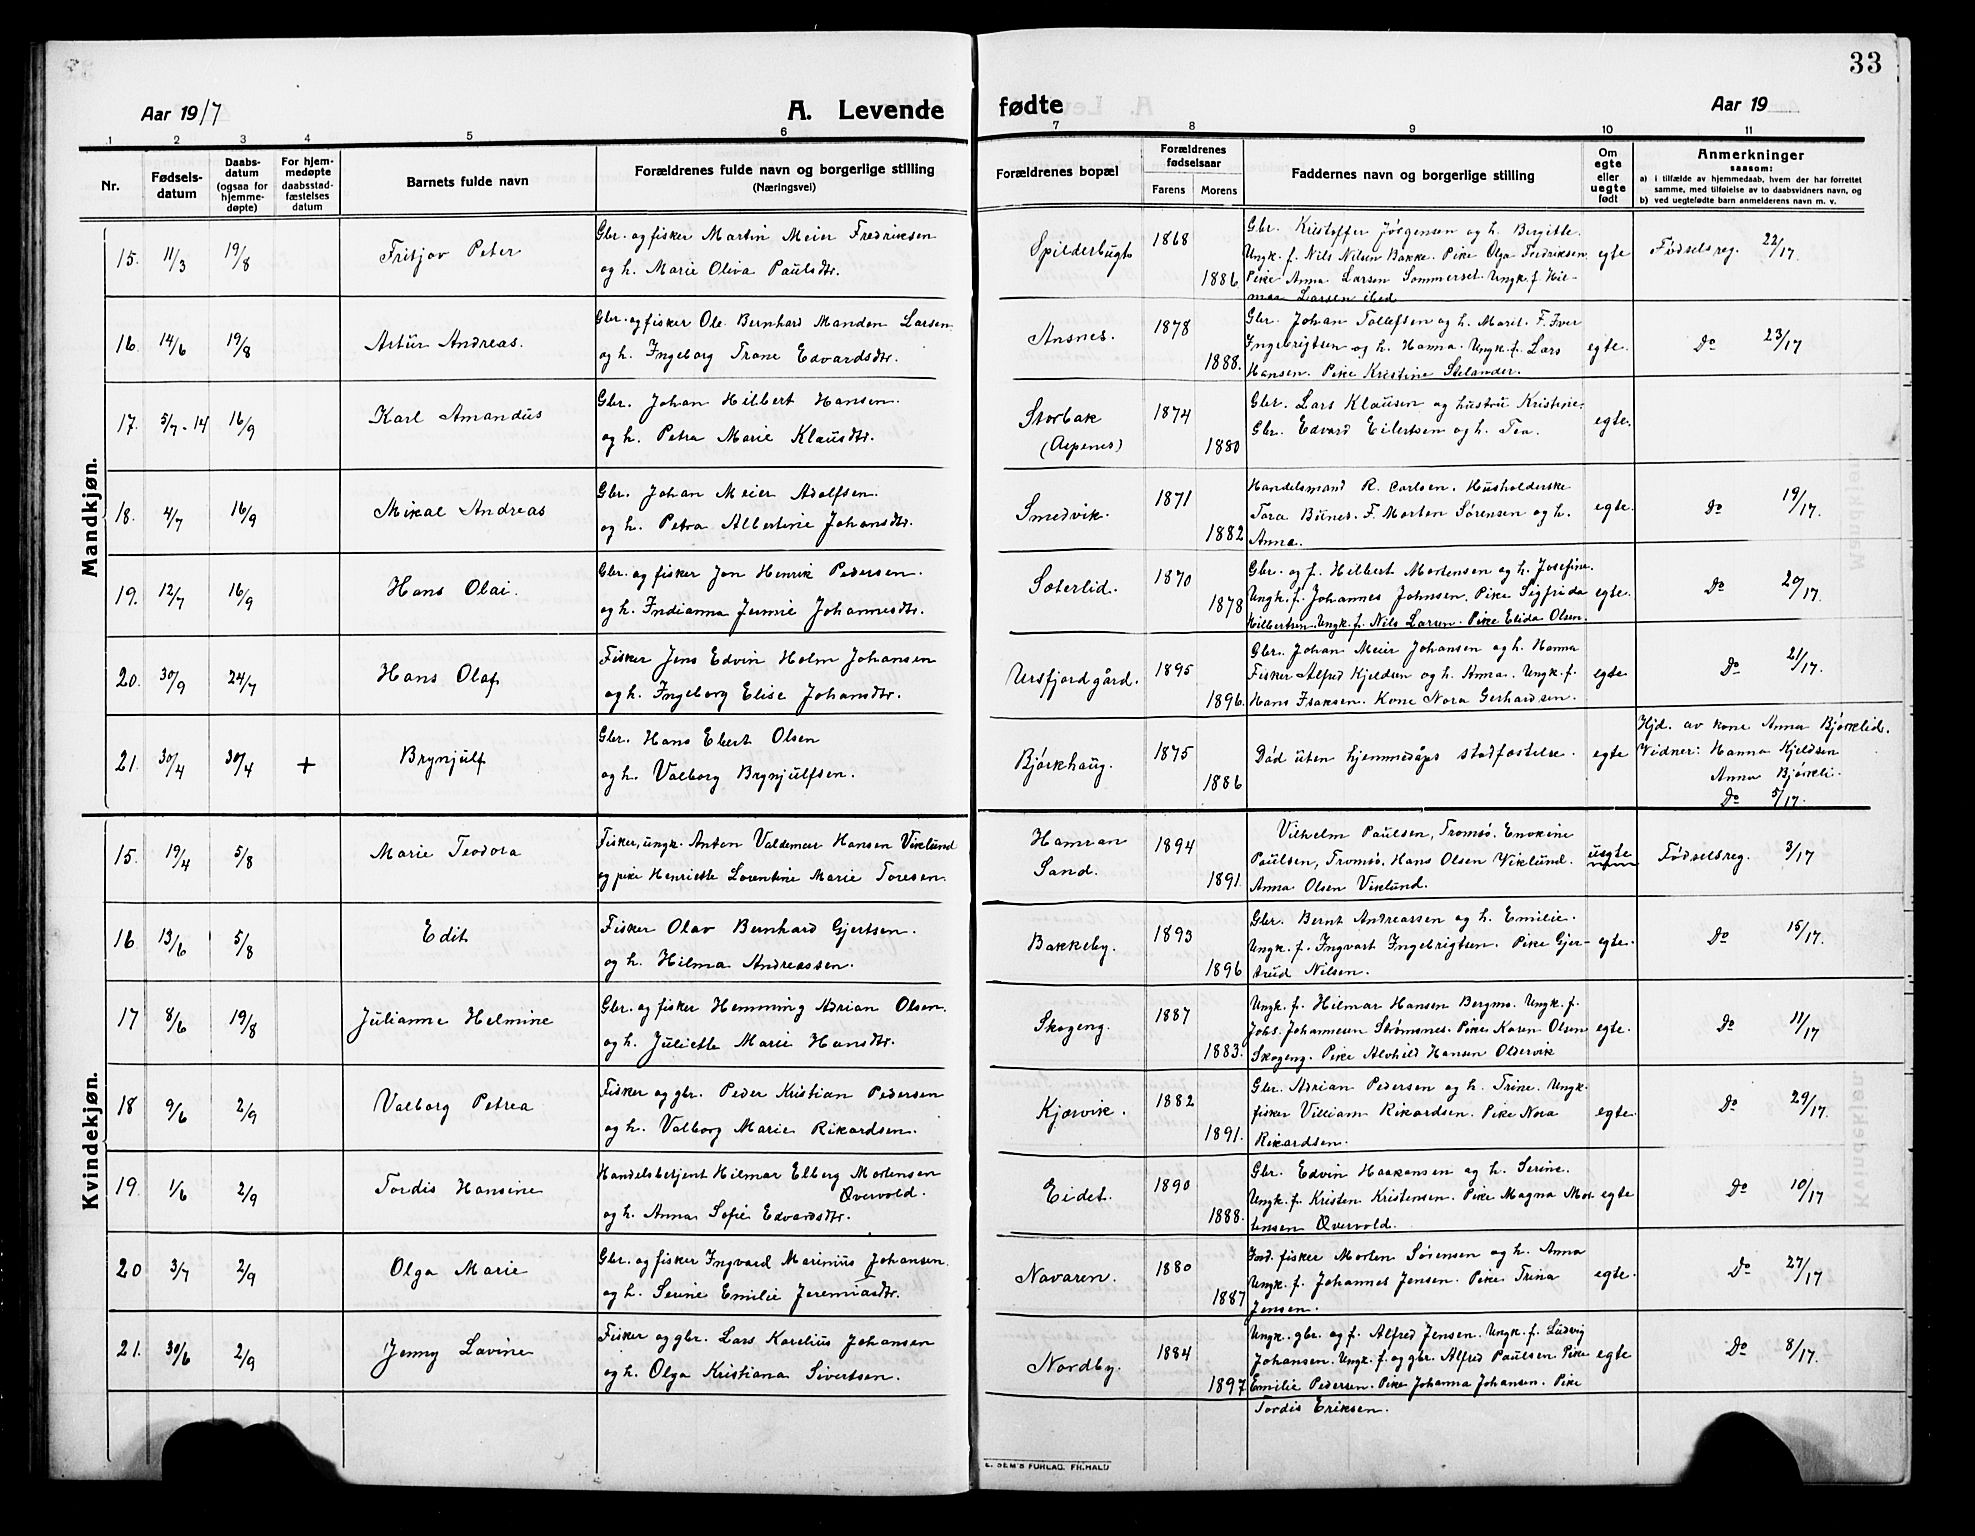 33
Aar 1917
A. Levende fødte
Aar 19
1 2 3 4 5 6 7 8 9 10 11
Nr.
Fødsels-
datum
Daabs-
datum
(ogsaa for
hjemme-
døpte)
For hjem-
medøpte
daabsstad-
fæstelses
datum
Barnets fulde navn
Forældrenes fulde navn og borgerlige stilling
(Næringsvei)
Forældrenes bopæl
Forældrenes
fødselsaar
Farens Morens
Faddernes navn og borgerlige stilling
Om
egte
eller
uegte
født
Anmerkninger
saasom:
a) i tilfælde av hjemmedaab, hvem der har forrettet
samme, med tilføielse av to daabsvidners navn, og
b) ved uegtefødte barn anmelderens navn m. v.
Mandkjøn.
15. 11/3 19/8
Fritjov Peter
Gbr. og fisker Martin Meier Fredriksen
og h. Marie Oliva Paulsdtr.
Spilderbugt
1868
1886
Gbr. Kristoffer Jörgensen og h. Bergitte.
Ungk. f. Nils Nilsen Bakke. Pike Olga Fredriksen
Pike Anna Larsen Sommerset. Ungk. f. Hil-
mar Larsen ibid
egte
Fødselsreg. 22/17.
16. 14/6 19/8
Artur Andreas.
Gbr. og fisker Ole Bernhard Mandon Larsen
og h. Ingeborg Trane Edvardsdtr.
Ansnes.
1878
1888.
Gbr. Johan Tollefsen og h. Marit. F. Iver
Ingebrigtsen og h. Hanna. Ungk. f. Lars
Hansen. Pike Kristine Stelander.
egte.
Do 23/17
17. 5/7-14 16/9
Karl Amandus
Gbr. Johan Hilbert Hansen.
og h. Petra Marie Klausdtr.
Storbak
(Aspenes)
1874
1880
Gbr. Lars Klausen og hustru Kristine.
Gbr. Edvard Eilertsen og h. Tea.
egte.
18. 4/7 16/9
Mikal Andreas
Gbr. Johan Meier Adolfsen.
og h. Petra Albertine Johansdtr.
Smedvik.
1871
1882
Handelsmand R. Carlsen. Husholderske
Tora Bunes. F. Morten Sørensen og h.
Anna.
egte.
Do 19/17.
19. 12/7 16/9
Hans Olai.
Gbr. og fisker Jon Henrik Pedersen.
og h. Indianna Jumie Johannesdtr.
Sæterlid.
1870
1878
Gbr. og f. Hilbert Mortensen og h. Josefine.
Ungk. f. Johannes Johnsen. Pike Sigfrida
Hilbertsen. Ungk. f. Nils Larsen. Pike Elida Olsen.
egte.
Do 20/17.
20. 30/9 24/7
Hans Olaf
Fisker Jens Edvin Holm Johansen
og h. Ingeborg Elise Johansdtr.
Ursfjordgård.
1895
1896.
Gbr. Johan Meier Johansen og h. Hanna
Fisker Alfred Kjeldsen og h. Anna. Ungk. f.
Hans Isaksen. Kone Nora Gerhardsen.
egte
Do 21/17.
21. 30/4 30/4 +
Brynjulf
Gbr. Hans Ebert Olsen
og h. Valborg Brynjulfsen.
Bjørkhaug.
1875
1886
Død uten hjemmedåps stadfæstelse.
egte
Hjd. av kone Anna Bjørklid.
Vidner: Hanna Kjeldsen
Anna Bjørkli.
Do 5/17.
Kvindekjøn.
15. 19/4 5/8
Marie Teodora
Fisker, ungk. Anton Valdemar Hansen Viklund
og pike Henriette Lorentine Marie Toresen.
Hamran
Sand.
1894
1891.
Vilhelm Paulsen, Tromsø. Enokine
Paulsen, Tromsø. Hans Olsen Wiklund.
Anna Olsen Viklund.
uegte
Fødselsreg. 3/17
16 13/6 5/8
Edit
Fisker Olav Bernhard Gjertsen.
og h. Hilma Andreassen.
Bakkeby.
1893
1896
Gbr. Bernt Andreassen og h. Emilie.
Ungk. f. Ingvart Ingebrigtsen. Pike Gjer-
trud Nilsen.
egte.
Do 15/17.
17 8/6 19/8
Julianne Helmine
Gbr. og fisker Hemming Adrian Olsen.
og h. Juliette Marie Hansdtr.
Skogeng.
1887
1883.
Ungk. f. Hilmar Hansen Bergmo. Ungk. f.
Johs. Johannesen Strømsnes. Pike Karen Olsen
Skogeng. Pike Alvhild Hansen Oldervik
egte.
Do 11/17
18 9/6 2/9
Valborg Petrea
Fisker og gbr. Peder Kristian Pedersen
og h. Valborg Marie Rikardsen.
Kjosvik.
1882
1891.
Gbr. Adrian Pedersen og h. Trine. Ungk.
fisker Villiam Rikardsen. Pike Nora
Rikardsen.
egte.
Do 29/17.
19. 1/6 2/9
Tordis Hansine
Handelsbetjent Hilmar Elberg Mortensen
Øvervold.
og h. Anna Sofie Edvardsdtr.
Eidet.
1890
1888.
Gbr. Edvin Haakonsen og h. Serine.
Ungk. f. Kristen Kristensen. Pike Magna Mor-
tensen Øvervold.
egte
Do 10/17
20 3/7 2/9
Olga Marie
Gbr. og fisker Ingvard Marinius Johansen.
og h. Serine Emilie Jeremiasdtr.
Navaren.
1880
1887
Jord. fisker Morten Sörensen og h. Anna
Ungk. f. Johannes Jensen. Pike Trina
Jensen.
egte.
Do 27/17
21. 30/6 2/9
Jenny Lovine
Fisker og gbr. Lars Korelius Johansen
og h. Olga Kristiana Sivertsen.
Nordby.
1884
1897
Ungk. gbr. og f. Alfred Jensen. Ungk. f. Ludvig
Johansen. Ungk. f. og gbr. Alfred Paulsen Pike
Emilie Pedersen. Pike Johanna Johansen. Pike
Tordis Eriksen.
egte
Do 8/17.
E. SEM'S FORLAG, FR.HALD